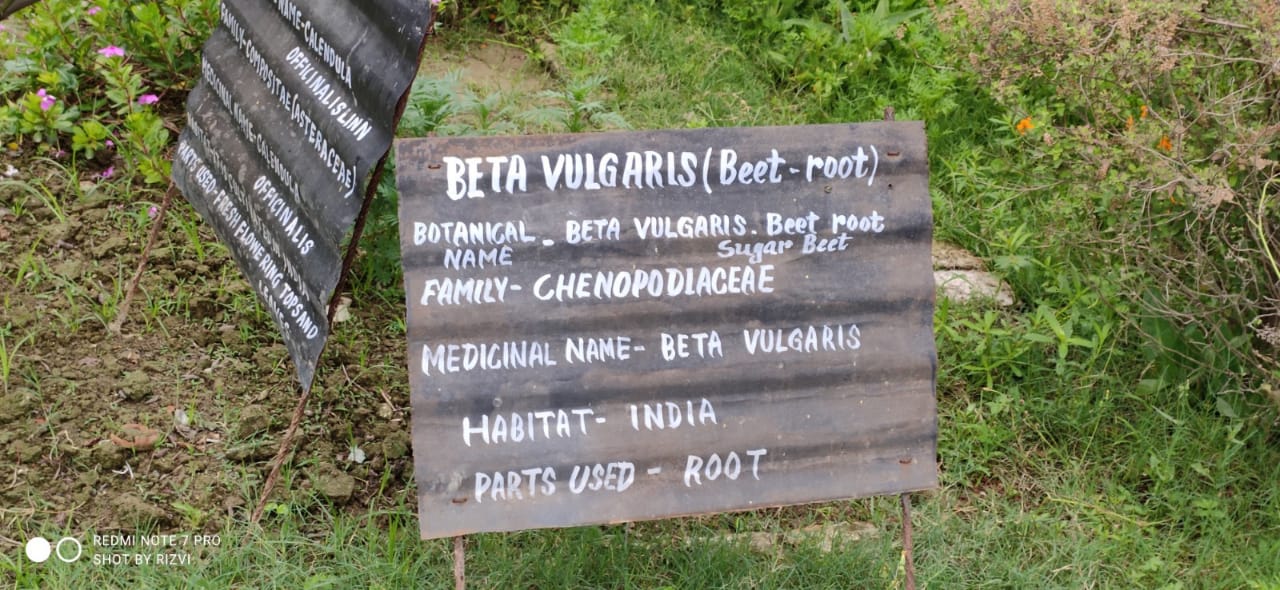 NAME-CALENDULA
OFFICINALIS LINN
FAMILY-COMPOSITAE (ASTERACEAE)
MEDICINAL NAME-CALENDULA
OFFICINALIS
PARTS USED-FRESH FLOWERING TOPS AND
BETA VULGARIS (Beet-root)
BOTANICAL - BETA VULGARIS. Beet root
NAME Sugar Beet
FAMILY- CHENOPODIACEAE
MEDICINAL NAME- BETA VULGARIS
HABITAT- INDIA
PARTS USED - ROOT
REDMI NOTE 7 PRO
SHOT BY RIZVI